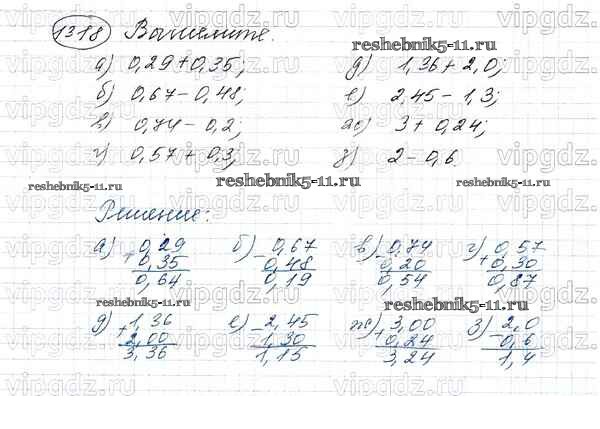 1318 Вычислите.
а) 0,29+0,35; д) 1,36+2,0;
б) 0,67-0,48; е) 2,45-1,3;
в) 0,74-0,2; ж) 3+0,24;
г) 0,57+0,3; з) 2-0,6.
Решение:
а) + 0,29 б) - 0,67 в) - 0,74 г) + 0,57
0,35 0,48 0,20 0,30
0,64 0,19 0,54 0,87
д) + 1,36 е) - 2,45 ж) + 3,00 з) - 2,0
2,00 1,30 0,24 0,6
3,36 1,15 3,24 1,4
reshebnik5-11.ru
reshebnik5-11.ru
reshebnik5-11.ru
reshebnik5-11.ru
reshebnik5-11.ru
vipgdz.ru